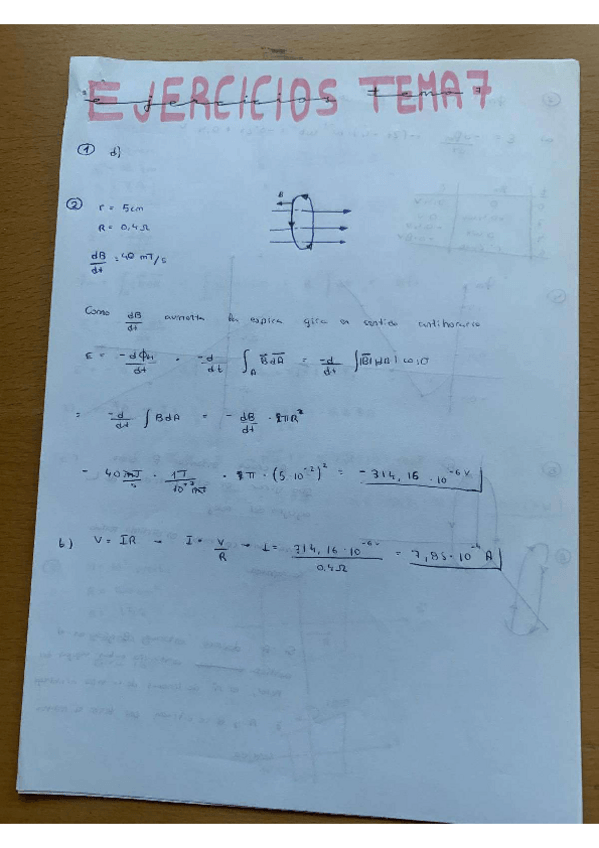 EJERCICIOS TEMA 7
ejercicios tema 7
① d)
② r = 5cm
R = 0,4 Ω
dB/dt = 40 mT/s
Como dB/dt aumenta la espira gira en sentido antihorario
ε = -dΦ/dt = -d/dt ∫A B dA = -d/dt ∫|B| |dA| cos 0
= -d/dt ∫ B dA = - dB/dt · π R²
- 40 mT/s · 1T/10⁺³ mT · π · (5·10⁻²)² = -314,16 · 10⁻⁶ V
b) V = IR → I = V/R → I = 314,16 · 10⁻⁶/0,4Ω = 7,85 · 10⁻⁴ A